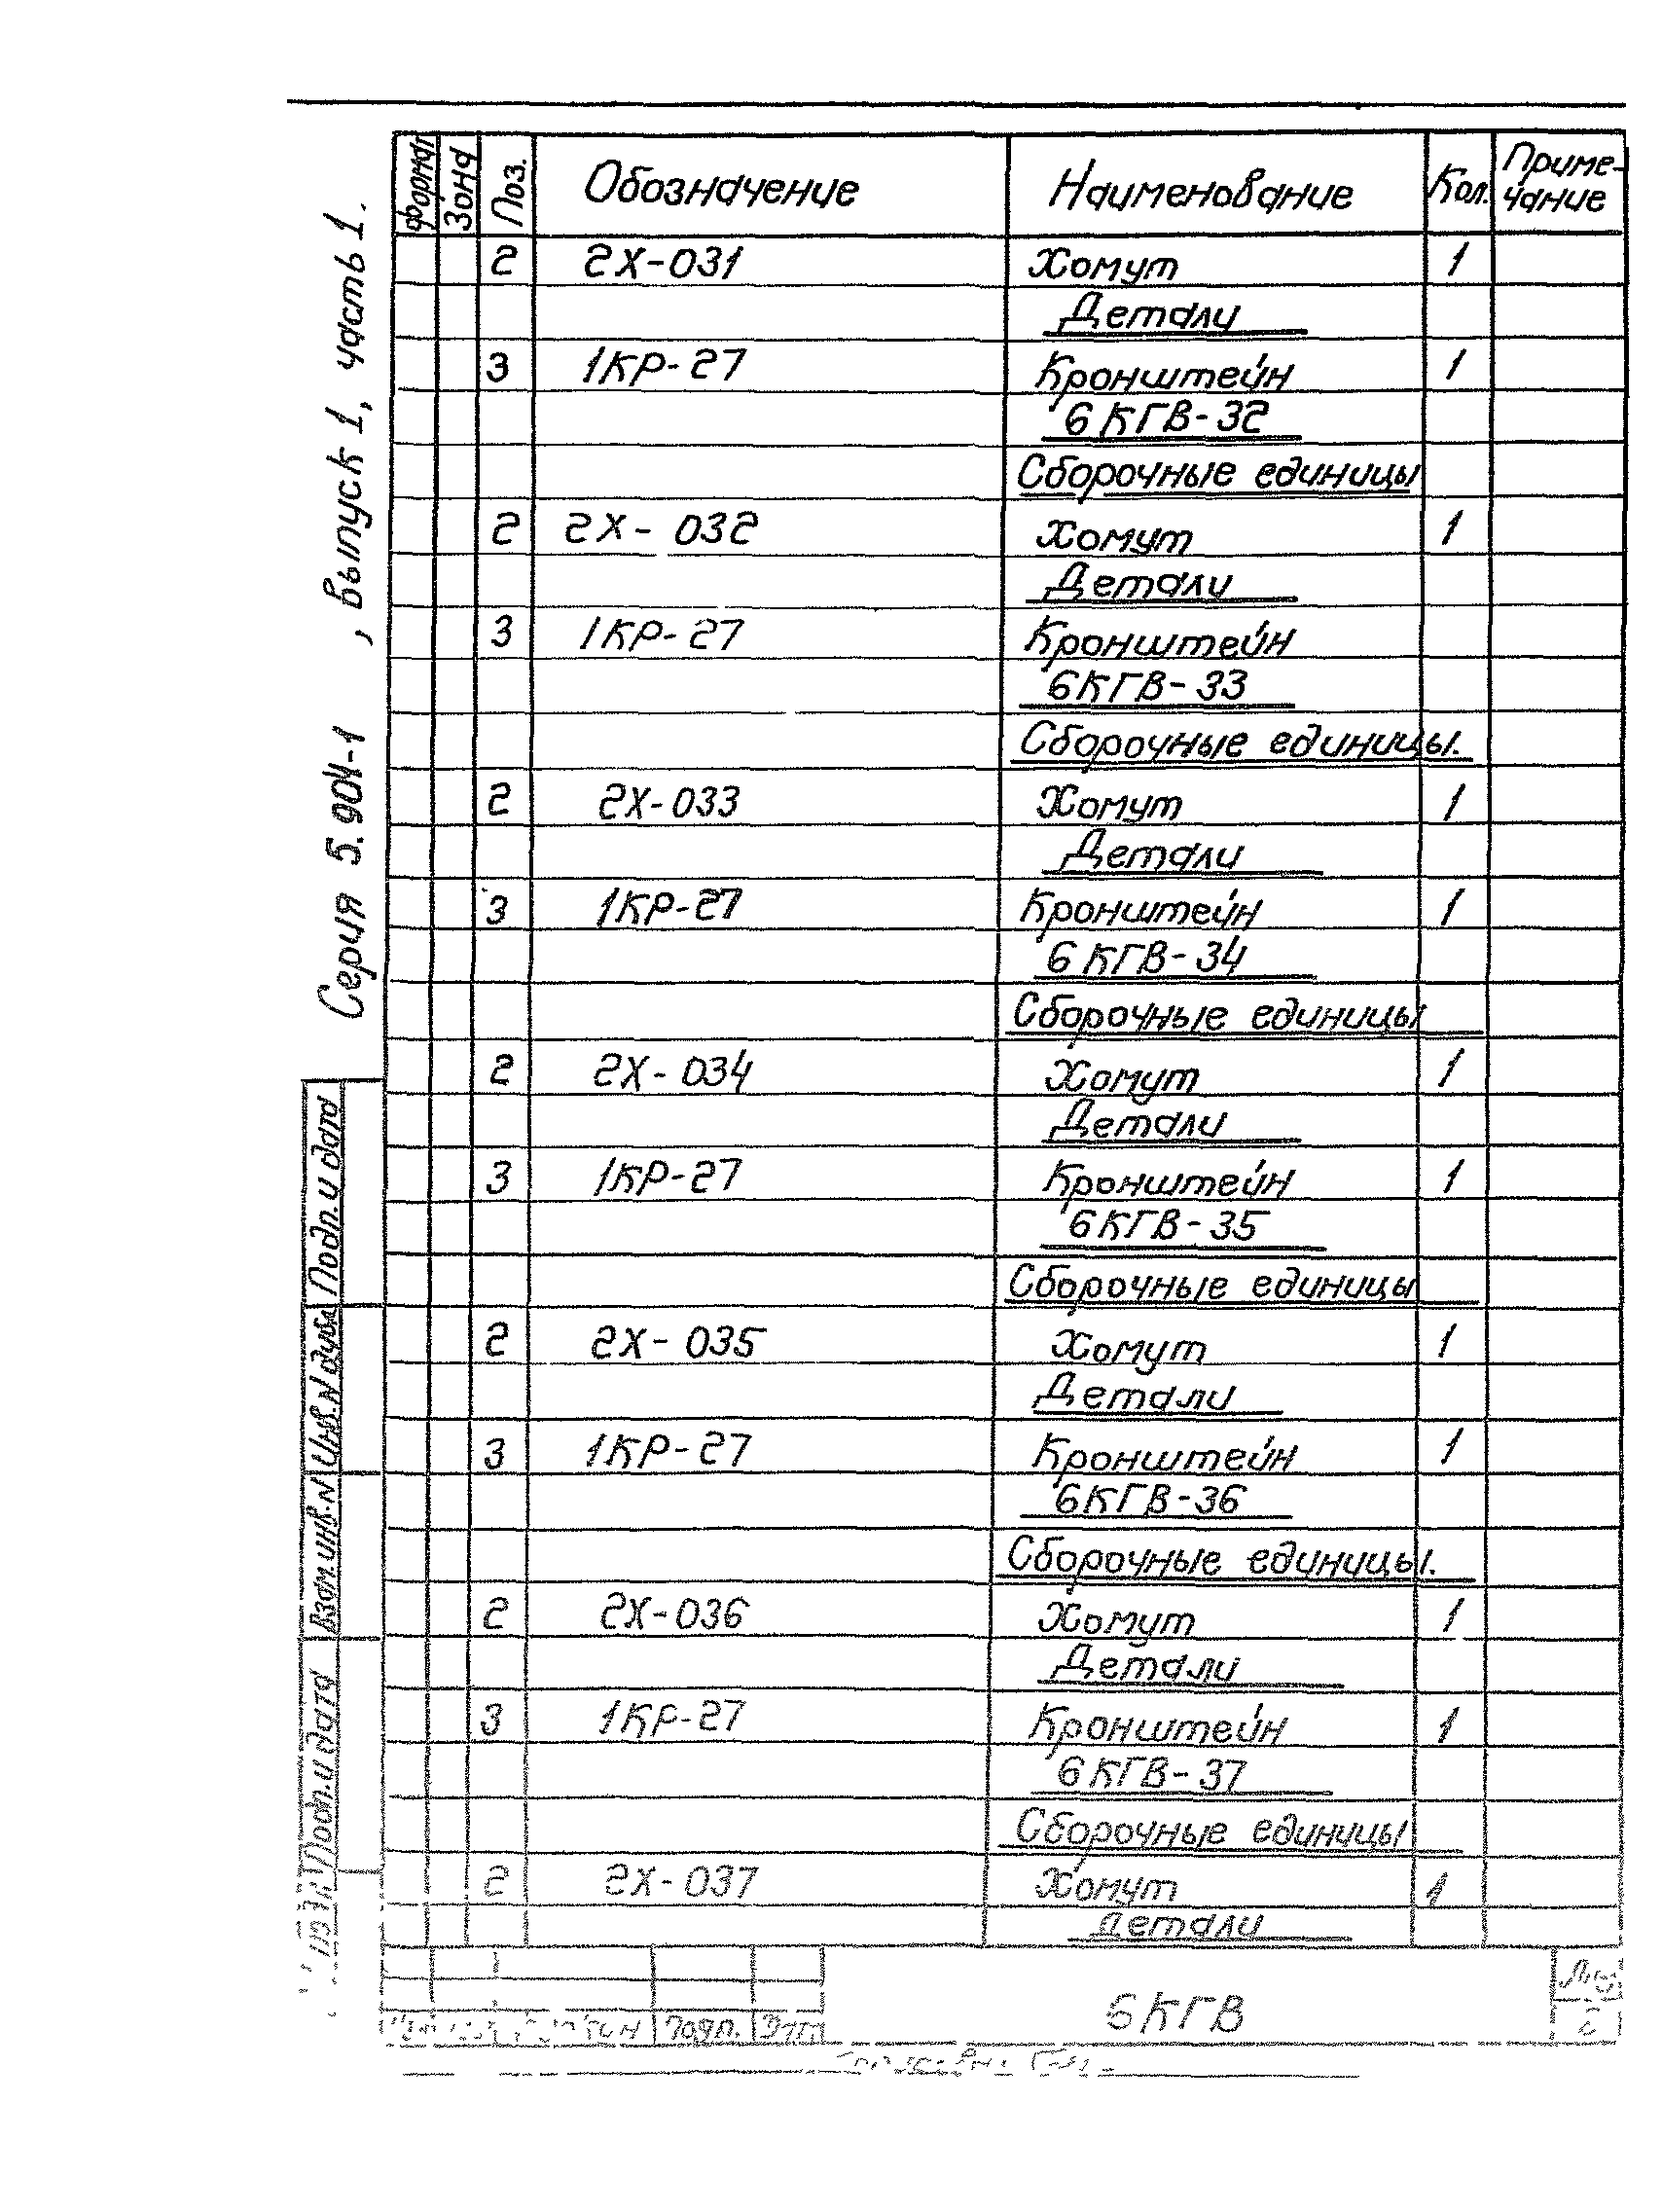 Серия 5.904-1 , выпуск 1, часть 1.
Формат Зона Поз. Обозначение Наименование Кол. Приме-
чание
2 2Х-031 Хомут 1
Детали
3 1КР-27 Кронштейн 1
6КГВ-32
Сборочные единицы
2 2Х-032 Хомут 1
Детали
3 1КР-27 Кронштейн
6КГВ-33
Сборочные единицы.
2 2Х-033 Хомут 1
Детали
3 1КР-27 Кронштейн 1
6КГВ-34
Сборочные единицы
2 2Х-034 Хомут 1
Детали
3 1КР-27 Кронштейн 1
6КГВ-35
Сборочные единицы
2 2Х-035 Хомут 1
Детали
3 1КР-27 Кронштейн 1
6КГВ-36
Сборочные единицы.
2 2Х-036 Хомут 1
Детали
3 1КР-27 Кронштейн 1
6КГВ-37
Сборочные единицы
2 2Х-037 Хомут 1
Детали
Подп. и дата
Инв. N дубл
Взам. инв. N
Подп. и дата
Подп.
6КГВ